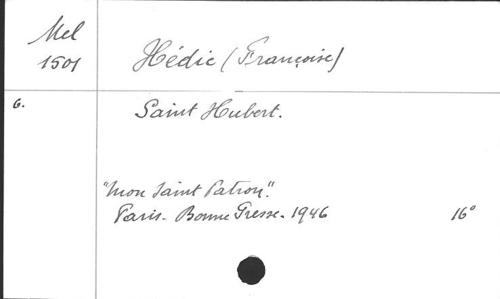 Mel
1501
Hédic (Françoise)
6.
Saint Hubert.
"Mon Saint Patron".
Paris. Bonne Presse. 1946 16°